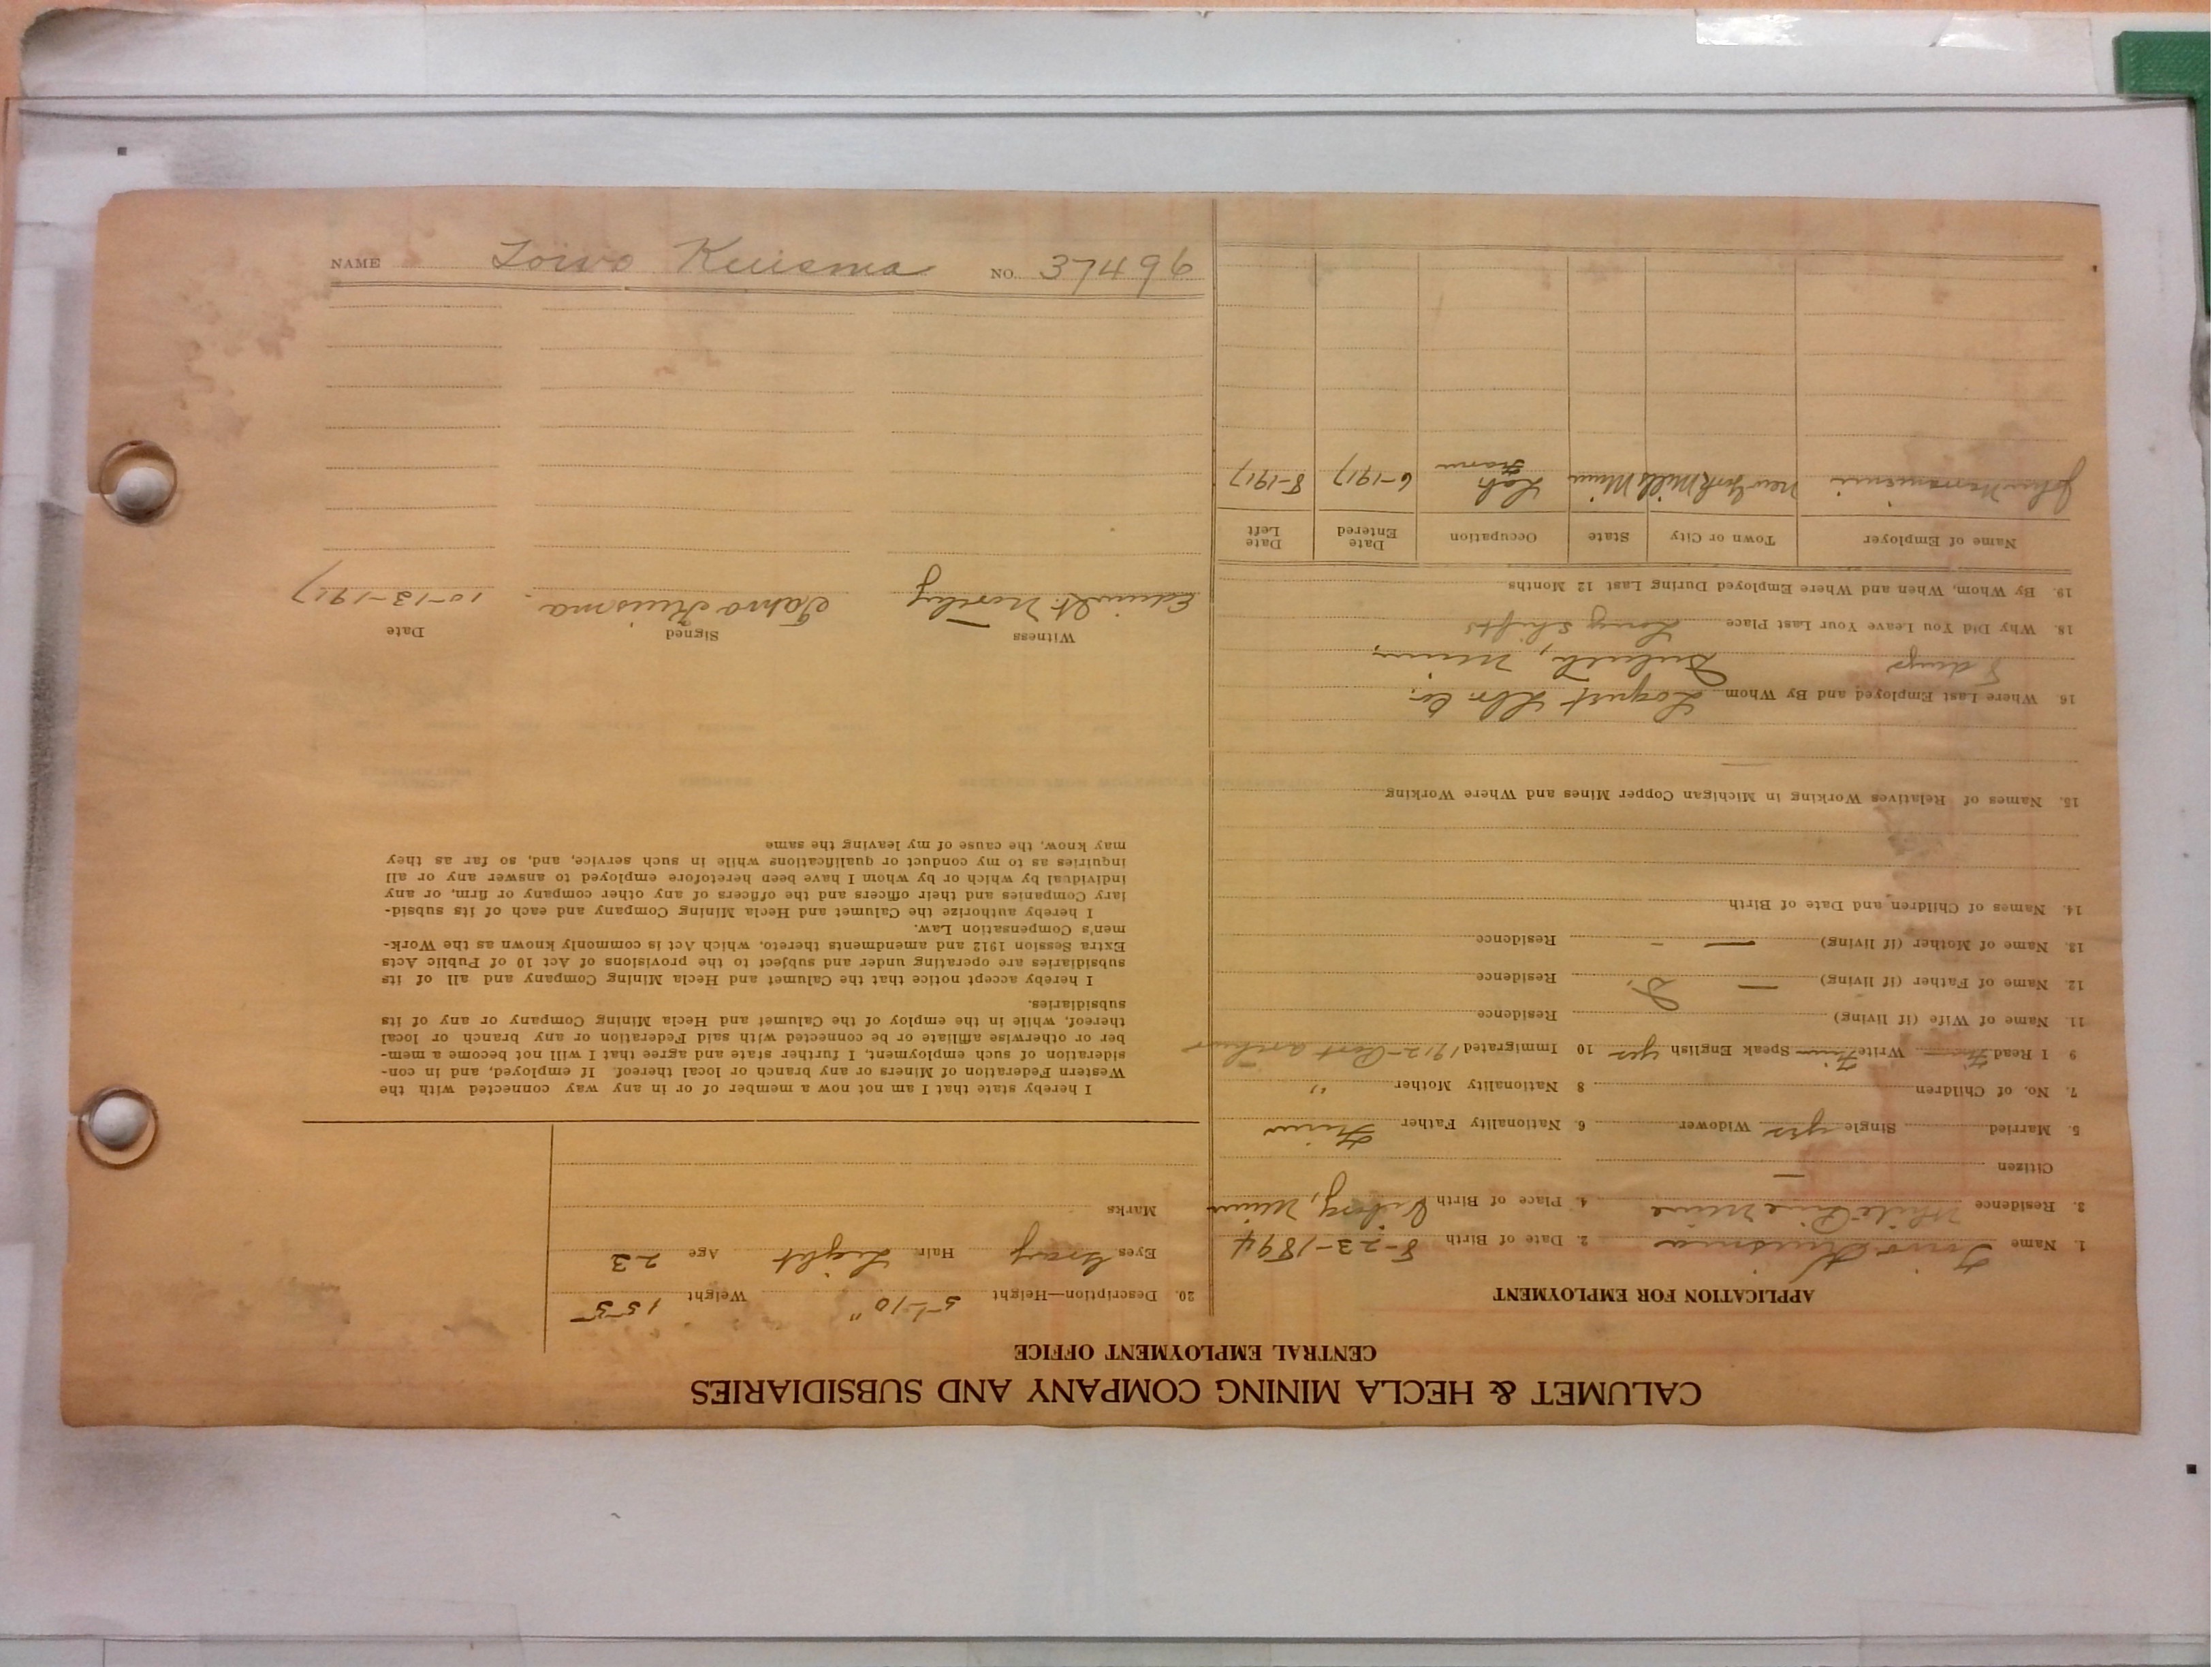 CALUMET & HECLA MINING COMPANY AND SUBSIDIARIES
CENTRAL EMPLOYMENT OFFICE
APPLICATION FOR EMPLOYMENT
1. Name Toivo Kuisma 2. Date of Birth 8-23-1894
3. Residence White Pine Mine 4. Place of Birth Viborg,
Citizen —
5. Married Single yes Widower 6. Nationality Father Finn
7. No. of Children 8 Nationality Mother "
9 I Read Finn Write Finn Speak English yes 10 Immigrated 1912- Port Arthur
11. Name of Wife (if living) Residence
12. Name of Father (if living) — D. Residence
13. Name of Mother (if living) — - Residence
14. Names of Children and Date of Birth
15. Names of Relatives Working in Michigan Copper Mines and Where Working
—
16 Where Last Employed and By Whom Loquist Lbr. Co.
8 days Duluth, Minn.
18. Why Did You Leave Your Last Place Long shifts
19. By Whom, When and Where Employed During Last 12 Months
Name of Employer Town or City State Occupation Date Entered Date Left
John New York Mills Minn Lab Farm 6-1917 8-1917
20. Description—Height 5'-10" Weight 155
Eyes Gray Hair Light Age 23
Marks
I hereby state that I am not now a member of or in any way connected with the
Western Federation of Miners or any branch or local thereof. If employed, and in con-
sideration of such employment, I further state and agree that I will not become a mem-
ber or otherwise affiliate or be connected with said Federation or any branch or local
thereof, while in the employ of the Calumet and Hecla Mining Company or any of its
subsidiaries.
I hereby accept notice that the Calumet and Hecla Mining Company and all of its
subsidiaries are operating under and subject to the provisions of Act 10 of Public Acts
Extra Session 1912 and amendments thereto, which Act is commonly known as the Work-
men's Compensation Law.
I hereby authorize the Calumet and Hecla Mining Company and each of its subsid-
iary Companies and their officers and the officers of any other company or firm, or any
individual by which or by whom I have been heretofore employed to answer any or all
inquiries as to my conduct or qualifications while in such service, and, so far as they
may know, the cause of my leaving the same
Witness Signed Date
Kuisma. 10-13-1917
NAME Toivo Kuisma NO. 37496